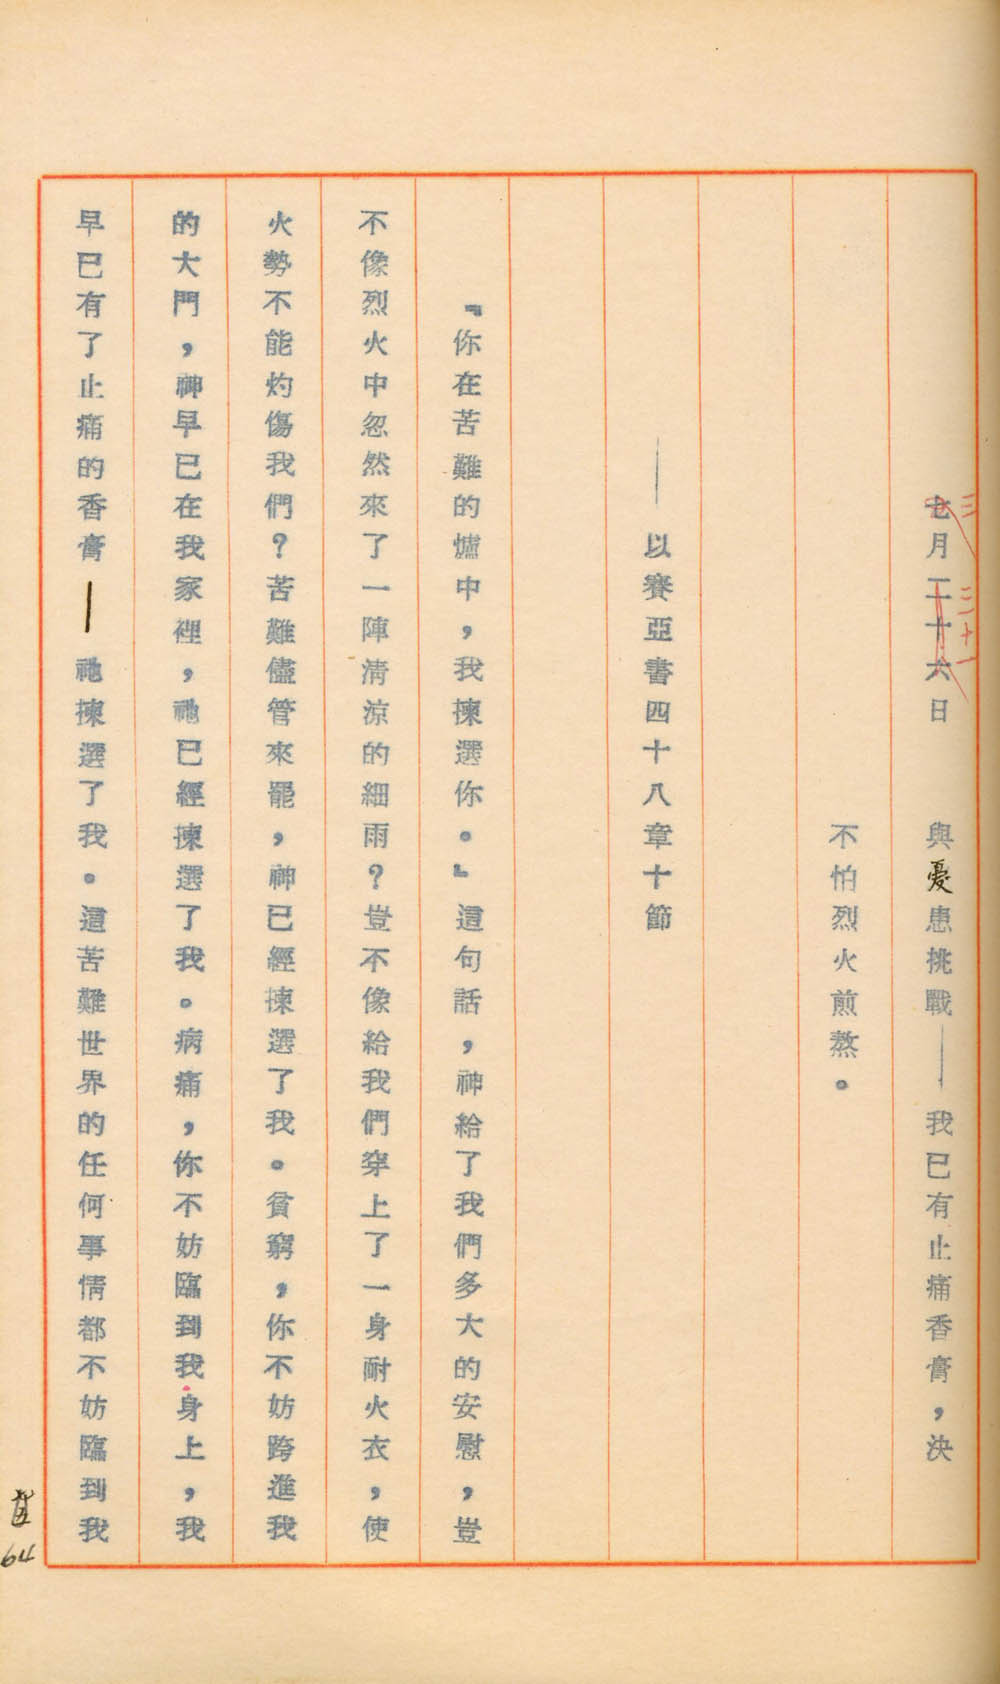 七月二十六日　　與憂患挑戰——我已有止痛香膏，決
三　二十一
不怕烈火煎熬。
——以賽亞書四十八章十節
『你在苦難的爐中，我揀選你。』這句話，神給了我們多大的安慰，豈
不像烈火中忽然來了一陣清涼的細雨？豈不像給我們穿上了一身耐火衣，使
火勢不能灼傷我們？苦難儘管來罷，神已經揀選了我。貧窮，你不妨跨進我
的大門，神早已在我家裡，祂已經揀選了我。病痛，你不妨臨到我身上，我
早已有了止痛的香膏—祂揀選了我。這苦難世界的任何事情都不妨臨到我
64